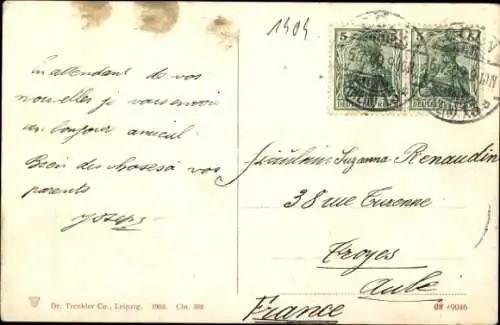 1404
En attendant de vos
nouvelles je vous envoie
un bonjour amical
Bien des choses à vos
parents
Joseph
5 5 5
DEUTSCHES REICH
Fräulein Suzanna Renaudin
38 rue Turenne
Troyes
Aube
France
Dr. Trenkler Co., Leipzig. 1906. Chn.